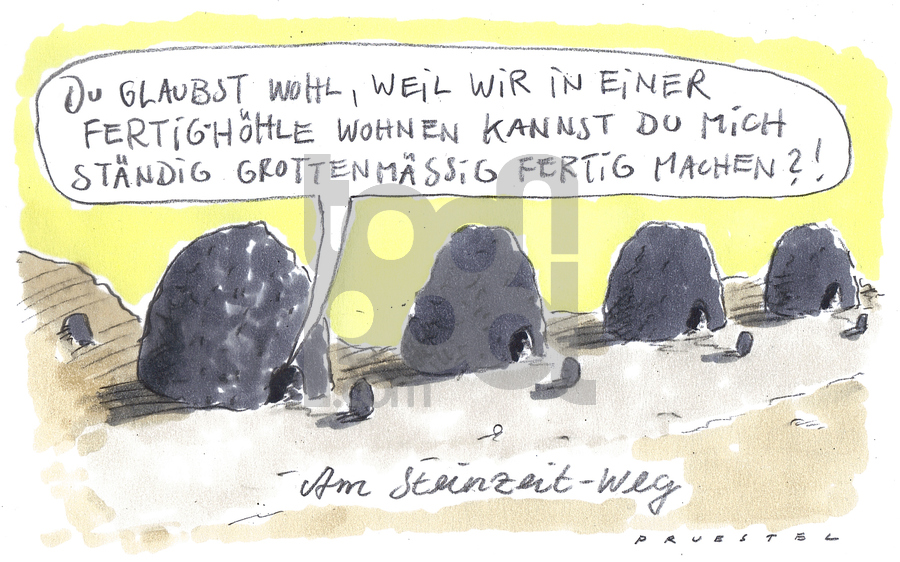 DU GLAUBST WOHL, WEIL WIR IN EINER
FERTIG-HÖHLE WOHNEN KANNST DU MICH
STÄNDIG GROTTENMÄSSIG FERTIG MACHEN?!
Am Steinzeit-Weg
PRUESTEL
toonpool.com